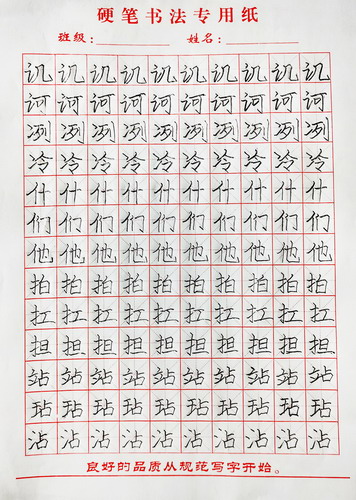 硬笔书法专用纸
班级： 姓名：
讥讥讥讥讥讥讥讥讥讥
诃诃诃诃诃诃诃诃诃诃
冽冽冽冽冽冽冽冽冽冽
冷冷冷冷冷冷冷冷冷冷
什什什什什什什什什什
们们们们们们们们们们
他他他他他他他他他他
拍拍拍拍拍拍拍拍拍拍
扛扛扛扛扛扛扛扛扛扛
担担担担担担担担担担
站站站站站站站站站站
玷玷玷玷玷玷玷玷玷玷
沾沾沾沾沾沾沾沾沾沾
良好的品质从规范写字开始。